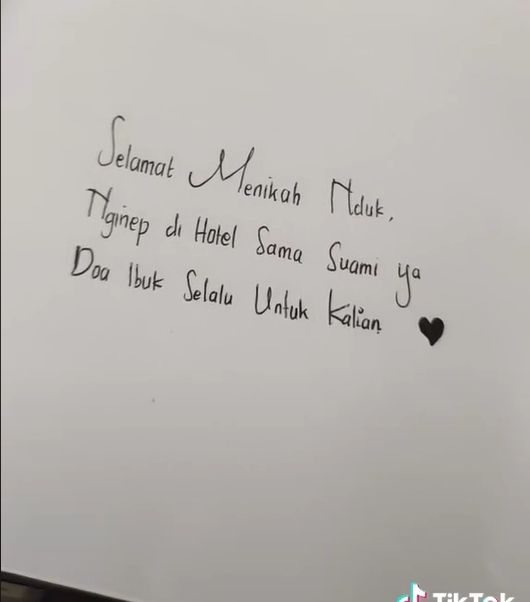 Selamat Menikah Nduk,
Nginep di Hotel Sama Suami ya
Doa Ibuk Selalu Untuk Kalian
TikTok